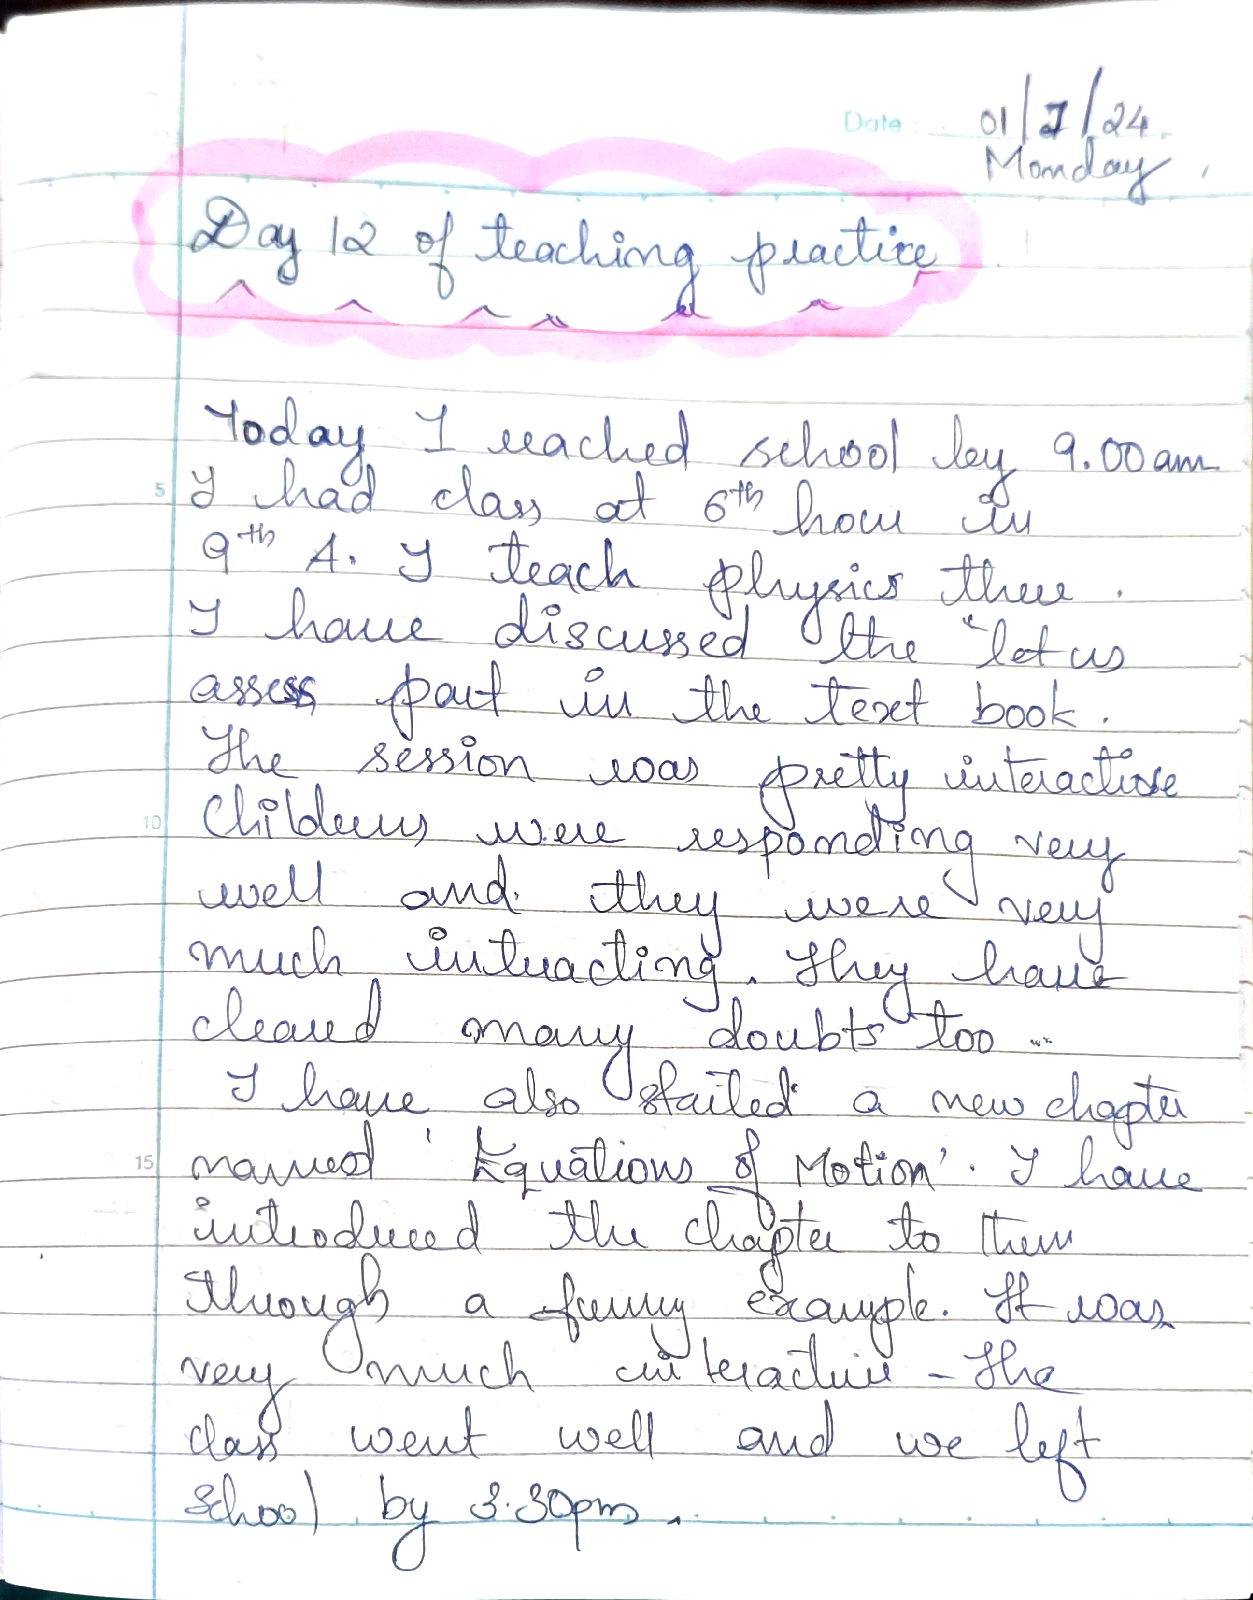 Date : 01/7/24.
Monday
Day 12 of teaching practice
Today I reached school by 9.00am
5 I had class at 6th hour in
9th A. I teach physics there.
I have discussed the "let us
assess part in the text book.
The session was pretty interactive
10 Childrens were responding very
well and they were very
much interacting. They have
cleared many doubts too ...
I have also started a new chapter
15 named 'Equations of Motion'. I have
introduced the chapter to them
through a funny example. It was
very much interactive - The
class went well and we left
school by 3.30pm.